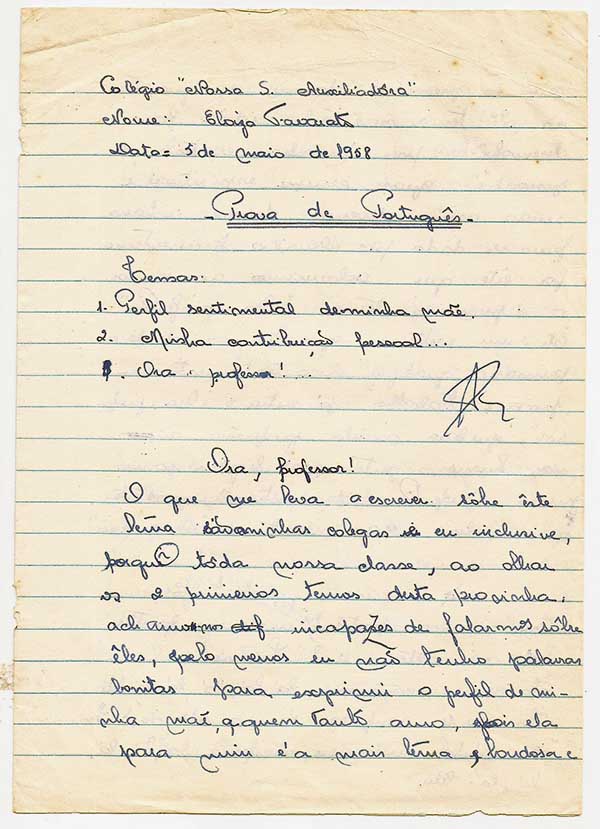 Colégio "Nossa S. Auxiliadôra"
Nome: Eloiza
Data = 5 de maio de 1958
- Prova de Português -
Temas:
1. Perfil sentimental de minha mãe.
2. Minha contribuição pessoal...
3. Ora professor!...
Ora, professor!
O que me leva a escrever sôbre êste
têma são minhas colegas e eu inclusive,
porque tôda nossa classe, ao olhar
os 2 primeiros temas desta provinha,
achamo-no incapazes de falarmos sôbre
êles, pelo menos eu não tenho palavras
bonitas para exprimir o perfil de mi-
nha mãe, a quem tanto amo, pois ela
para mim é a mais têrna, bondosa e